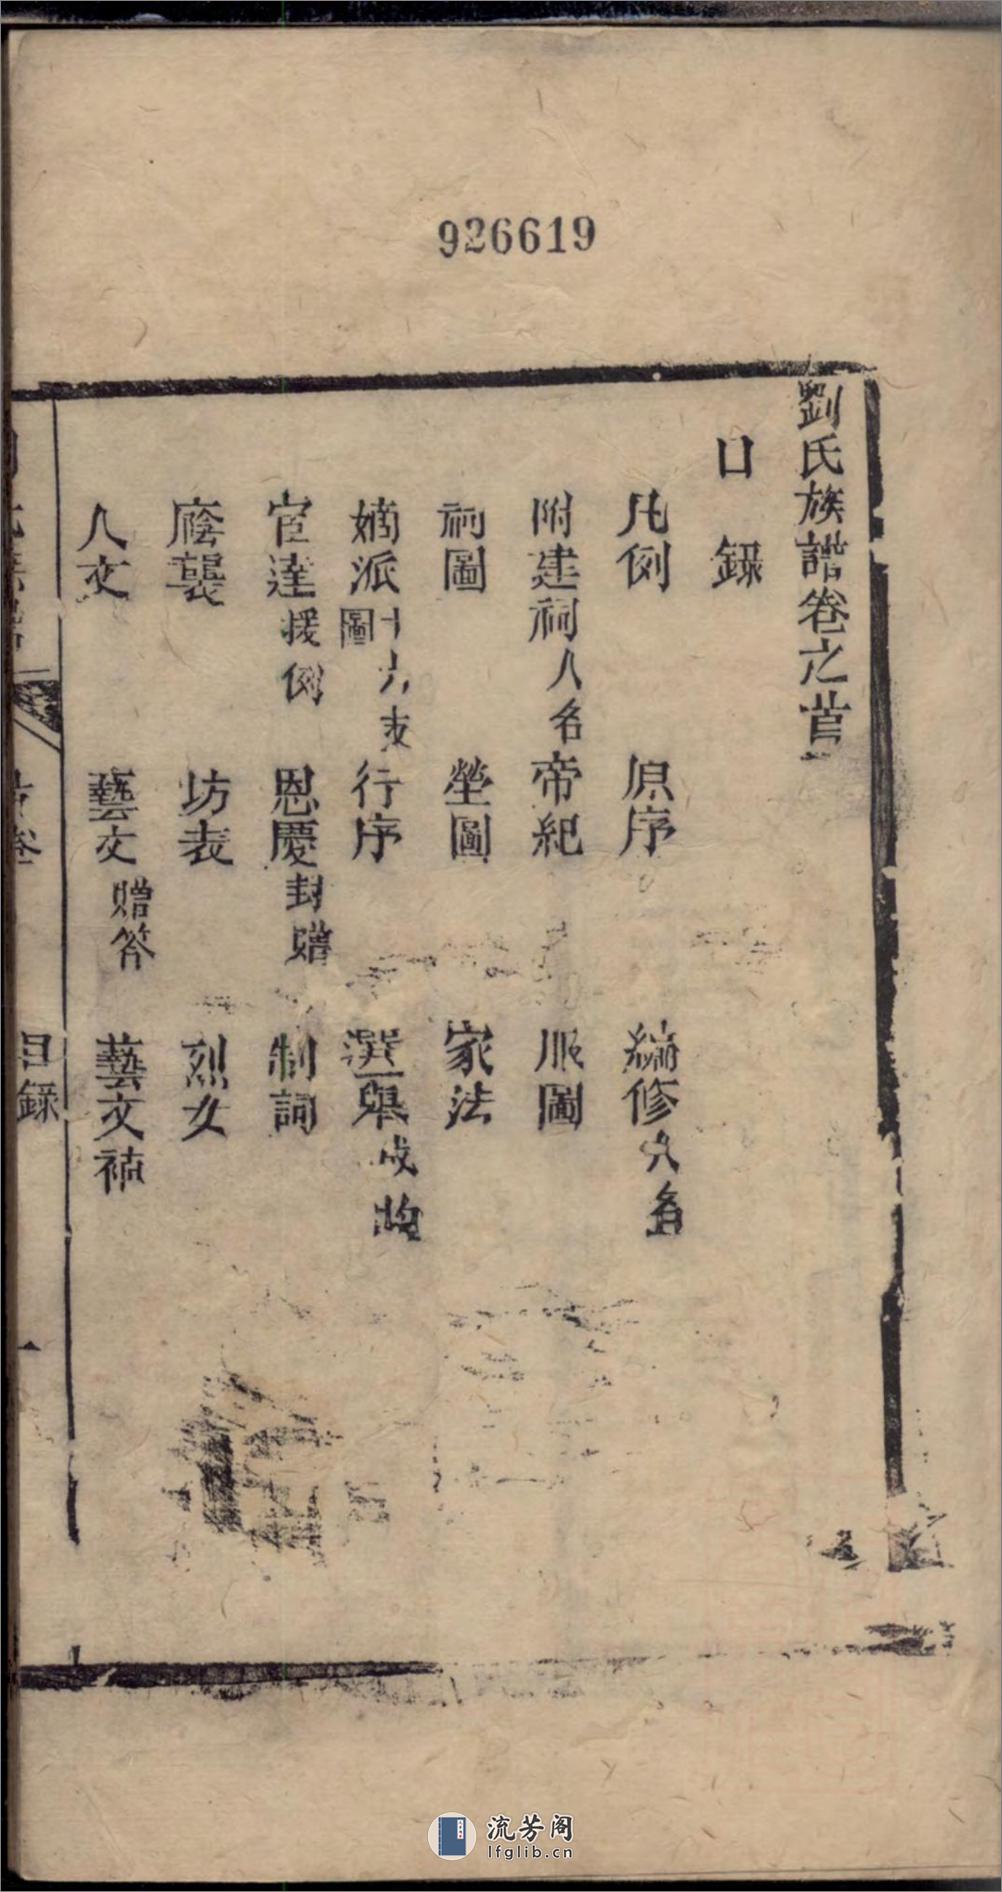 926619
劉氏族譜卷之首
目錄
凡例 原序 編修人名
附建祠人名 帝紀 服圖
祠圖 塋圖 家法
嫡派十六支圖 行序 選舉
宦達援例 恩慶封贈 制詞
廕襲 坊表 烈女
人文 藝文贈答 藝文補
首卷 目錄
流芳阁
lfglib.cn